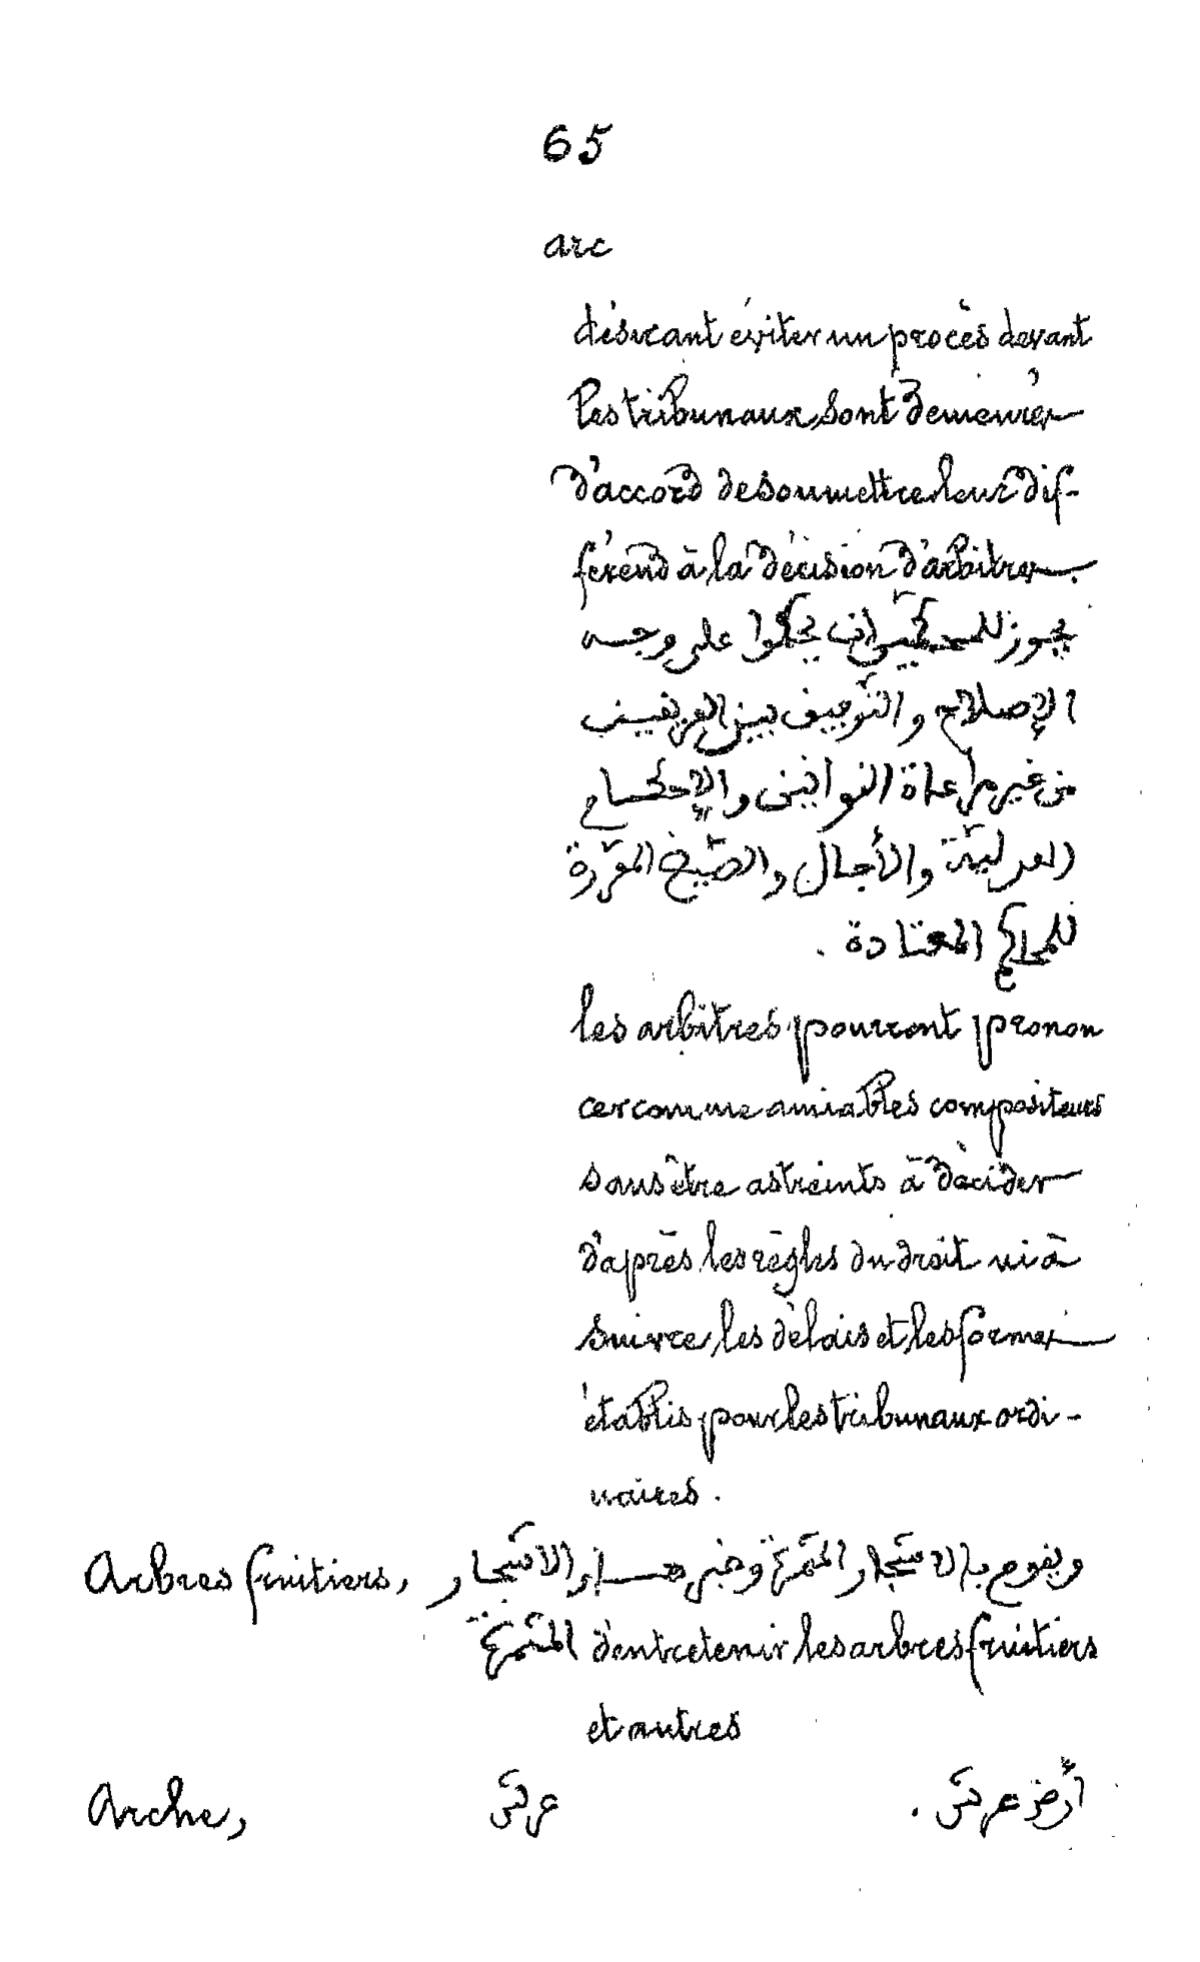 65
arc
désirant éviter un procès devant
les tribunaux, sont demeurés
d'accord de soumettre leur dif-
férend à la décision d'arbitres.
يجوز للمحكّمين ان يحكموا على وجه
الإصلاح والتّوفيق بين الفريقين
من غير مراعاة القوانين والإحكام
العدليّة والأجال والصّيغ المقرّرة
للمحاكم المعتادة .
les arbitres pourront pronon
cer comme amiables compositeurs
sans être astreints à décider
d'après les règles du droit ni à
suivre les délais et les formes
établis pour les tribunaux ordi-
naires.
Arbres fruitiers, الاشجار المثمرة ويقوم بالاشجار المثمرة
d'entretenir les arbres fruitiers
et autres
Arche, عرش أرض عرش .